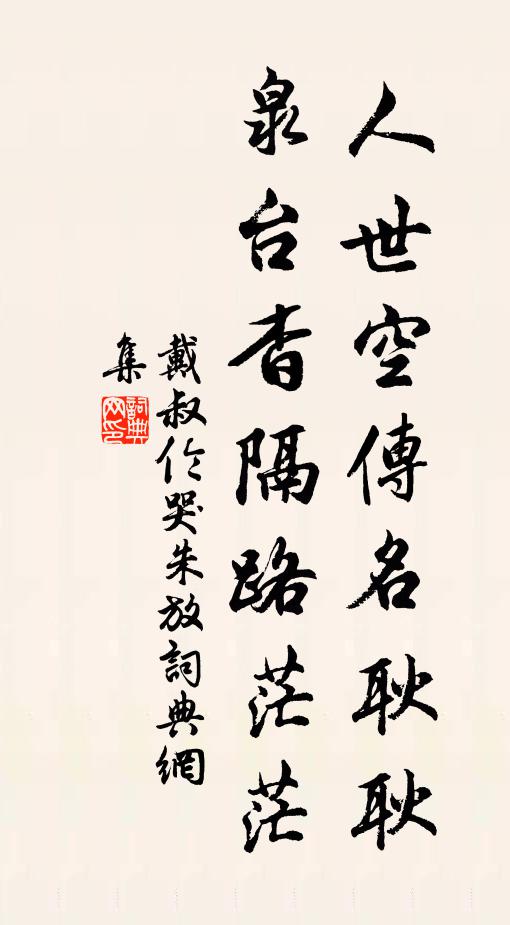 人世空傳名耿耿
泉台杳隔路茫茫
戴叔伦哭朱放詞典網
集
詞典
网印